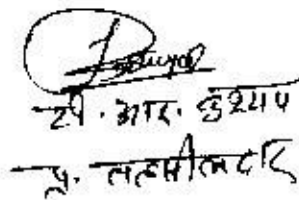 टी. आर. कुश्याप
प्र. तहसीलदार